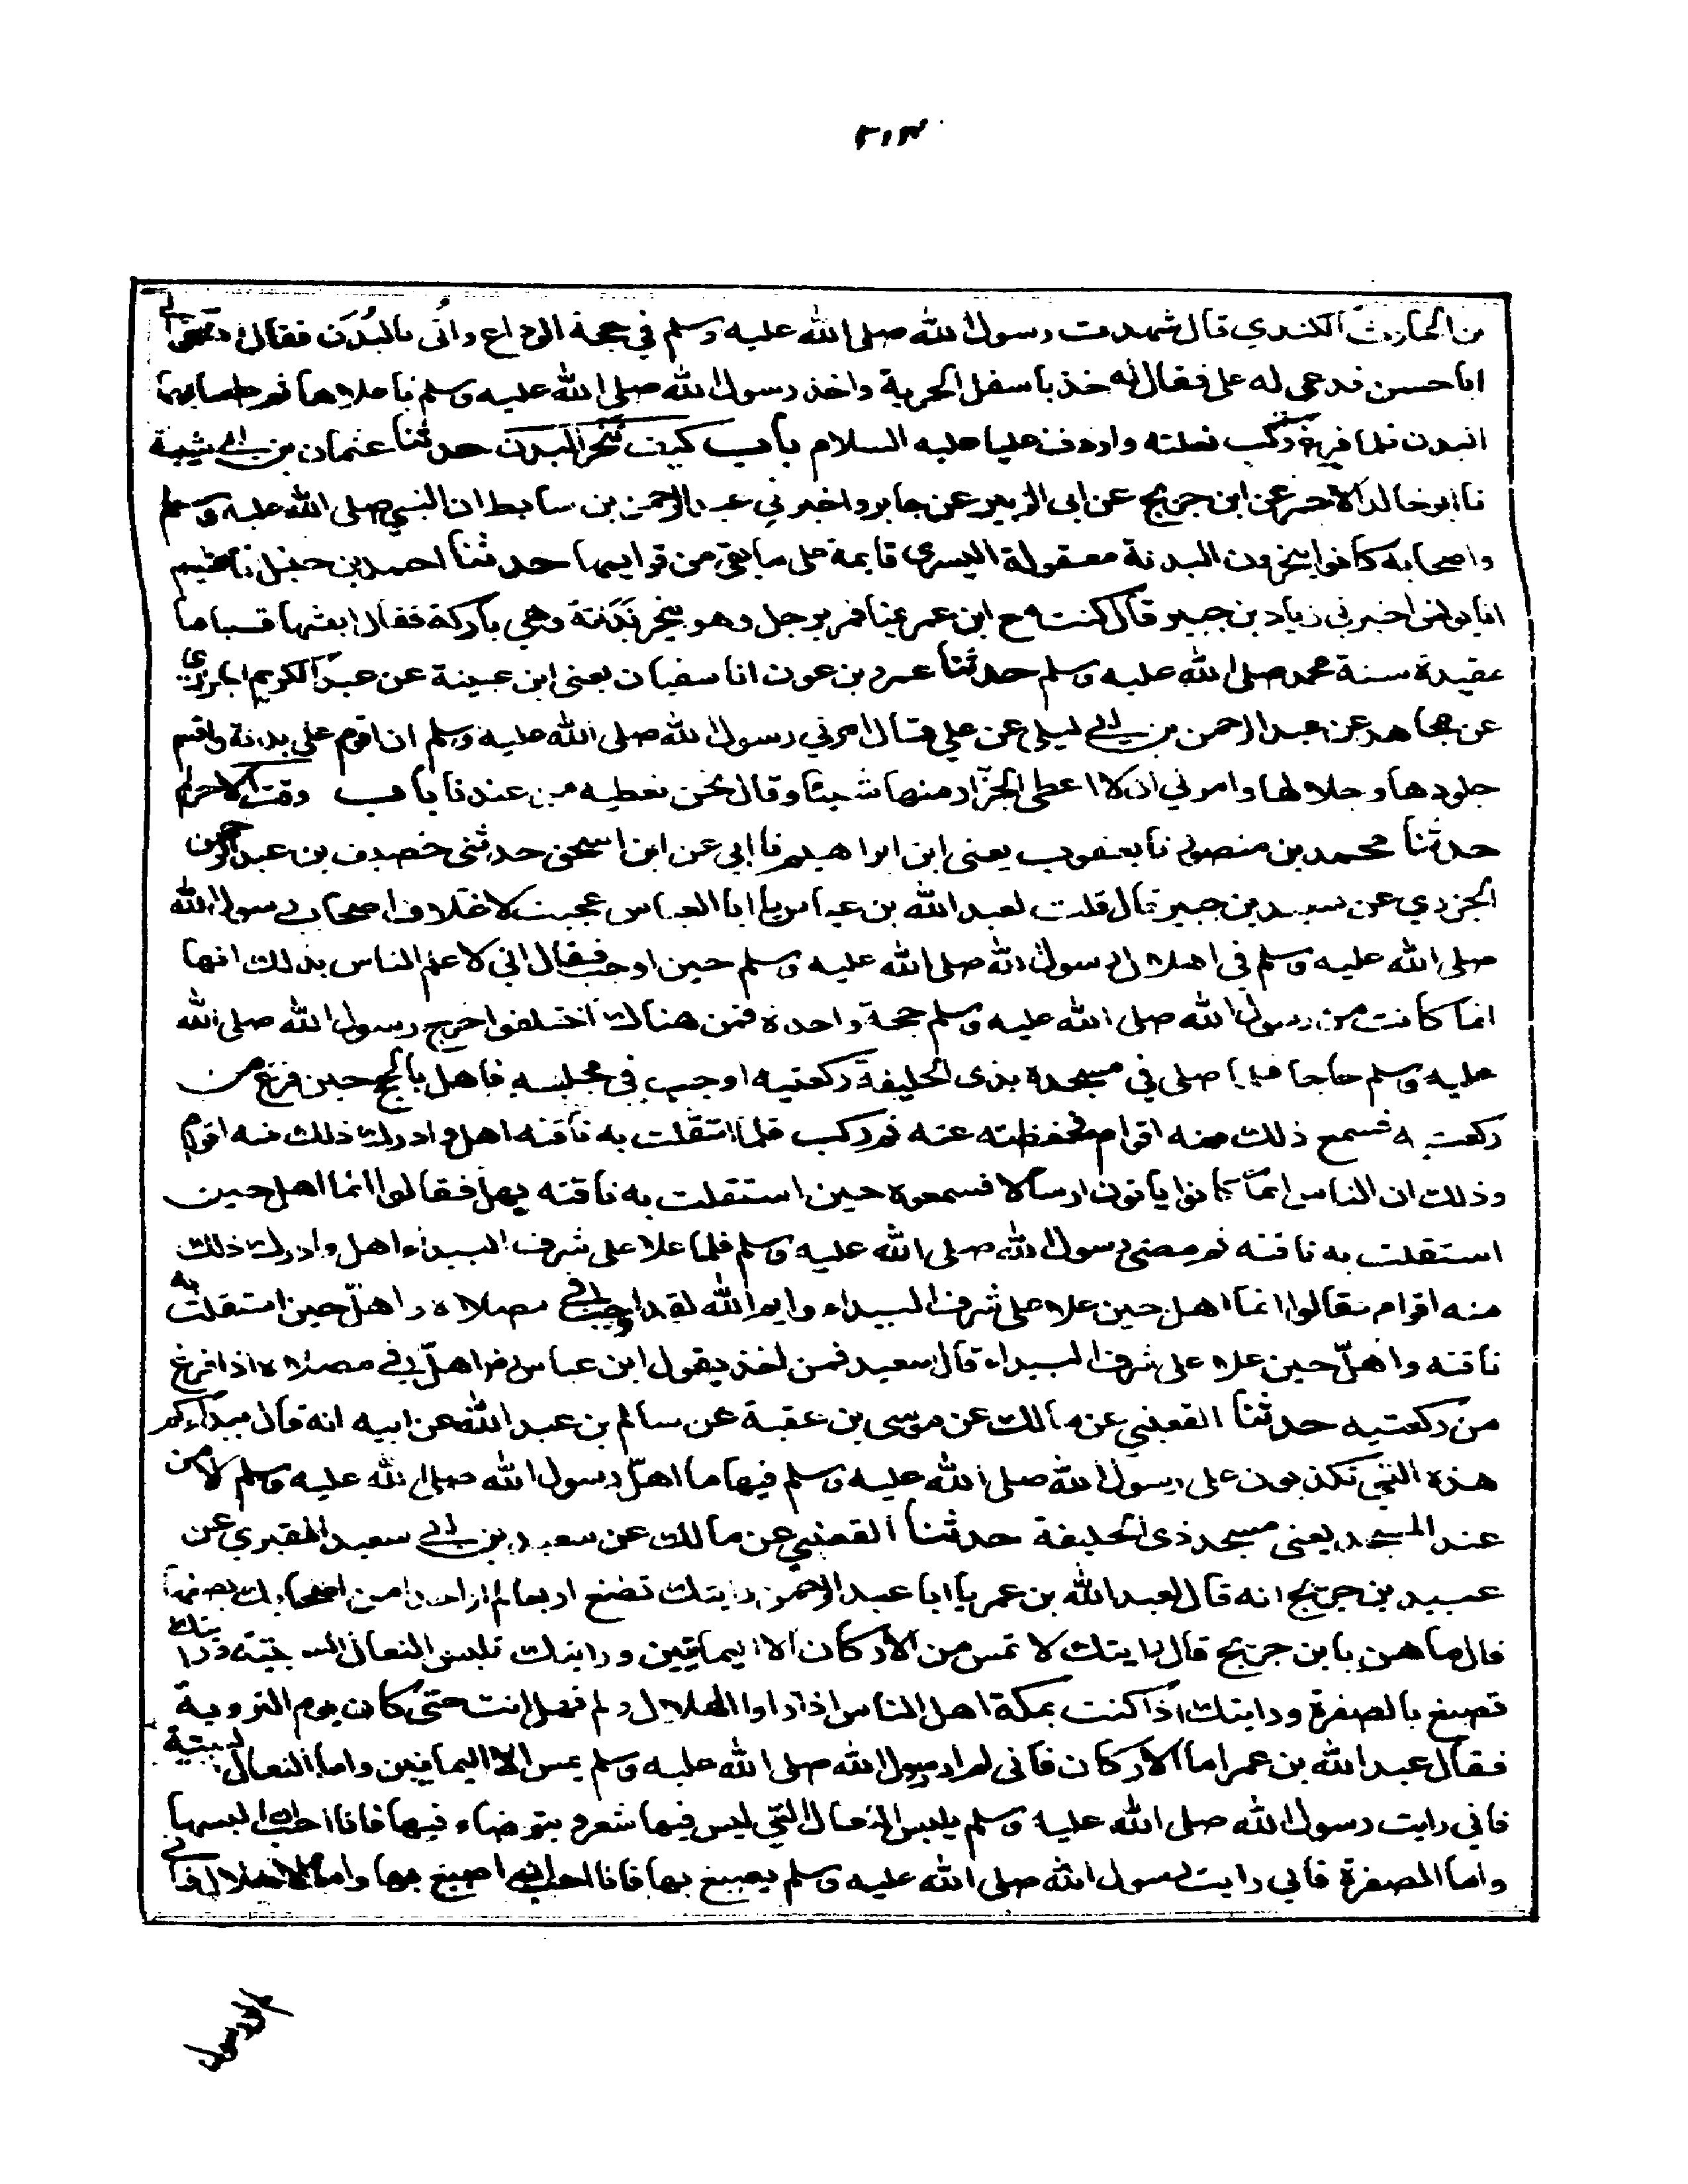 ٢١٣
بن الحارث الكندي قال شهدت رسول الله صلى الله عليه وسلم في حجة الوداع واُتى بالبُدن فقال ادعوا لي
ابا حسن فدعي له علي فقال له خذ باسفل الحربة واخذ رسول الله صلى الله عليه وسلم باعلاها ثم طعنا بها
البدن فلما فرغ ركب بغلته واردف عليا عليه السلام باب كيف تنحر البدن حدثنا عثمان بن ابي شيبة
نا ابو خالد الاحمر عن ابن جريج عن ابى الزبير عن جابر واخبرني عبد الرحمن بن سابط ان النبي صلى الله عليه وسلم
واصحابه كانوا ينحرون البدنة معقولة اليسرى قايمة على ما بقي من قوايمها حدثنا احمد بن حنبل نا هشيم
انا يونس اخبرني زياد بن جبير قال كنت مع ابن عمر بمنا فمر برجل وهو ينحر بَدَنَتَه وهي باركة فقال ابعثها قياما
مقيدة سنة محمد صلى الله عليه وسلم حدثنا عمرو بن عون انا سفيان يعنى ابن عيينة عن عبد الكريم الجزري
عن مجاهد عن عبد الرحمن بن ابي ليلى عن علي قال امرني رسول الله صلى الله عليه وسلم ان اقوم على بدنة واقسم
جلودها وجلالها وامرني ان لا اعطي الجزّار منها شيئا وقال نحن نعطيه من عندنا باب وقت الاحرام
حدثنا محمد بن منصور نا يعقوب يعنى ابن ابراهيم نا ابي عن ابن اسحق حدثنى خصيف بن عبد الرحمن
الجزري عن سعيد بن جبير قال قلت لعبد الله بن عباس يا ابا العباس عجبت لاختلاف اصحاب رسول الله
صلى الله عليه وسلم في اهلال رسول الله صلى الله عليه وسلم حين اوجب فقال اني لاعلم الناس بذلك انها
انما كانت من رسول الله صلى الله عليه وسلم حجة واحدة فمن هناك اختلفوا خرج رسول الله صلى الله
عليه وسلم حاجا فلما صلى في مسجده بذى الحليفة ركعتيه اوجب في مجلسه فاهل بالحج حين فرغ من
ركعتيه فسمع ذلك منه اقوام فحفظته عنه ثم ركب فلما استقلت به ناقته اهل وادرك ذلك منه اقوام
وذلك ان الناس انما كانوا ياتون ارسالا فسمعوه حين استقلت به ناقته يهل فقالوا انما اهل حين
استقلت به ناقته ثم مضى رسول الله صلى الله عليه وسلم فلما علا على شرف البيداء اهل وادرك ذلك
منه اقوام فقالوا انما اهل حين علا على شرف البيداء وايم الله لقد اوجب في مصلاه واهلّ حين استقلت به
ناقته واهلّ حين علا على شرف البيداء قال سعيد فمن اخذ بقول ابن عباس اهلّ في مصلاه اذا فرغ
من ركعتيه حدثنا القعنبي عن مالك عن موسى بن عقبة عن سالم بن عبد الله عن ابيه انه قال بيداءكم
هذه التي تكذبون على رسول الله صلى الله عليه وسلم فيها ما اهلّ رسول الله صلى الله عليه وسلم الا من
عند المسجد يعنى مسجد ذى الحليفة حدثنا القعنبي عن مالك عن سعيد بن ابي سعيد المقبري عن
عبيد بن جريج انه قال لعبد الله بن عمر يا ابا عبد الرحمن رايتك تصنع اربعا لم ار احدا من اصحابك يصنعها
قال ما هن يا بن جريج قال رايتك لا تمس من الاركان الا اليمانيين ورايتك تلبس النعال السبتية ورايتك
تصبغ بالصفرة ورايتك اذا كنت بمكة اهل الناس اذا راوا الهلال ولم تهل انت حتى كان يوم التروية
فقال عبد الله بن عمر اما الاركان فاني لم ار رسول الله صلى الله عليه وسلم يمس الا اليمانيين واما النعال السبتية
فاني رايت رسول الله صلى الله عليه وسلم يلبس النعال التي ليس فيها شعر ويتوضاء فيها فانا احب ان البسها
واما الصفرة فاني رايت رسول الله صلى الله عليه وسلم يصبغ بها فانا احب ان اصبغ بها واما الاهلال فاني